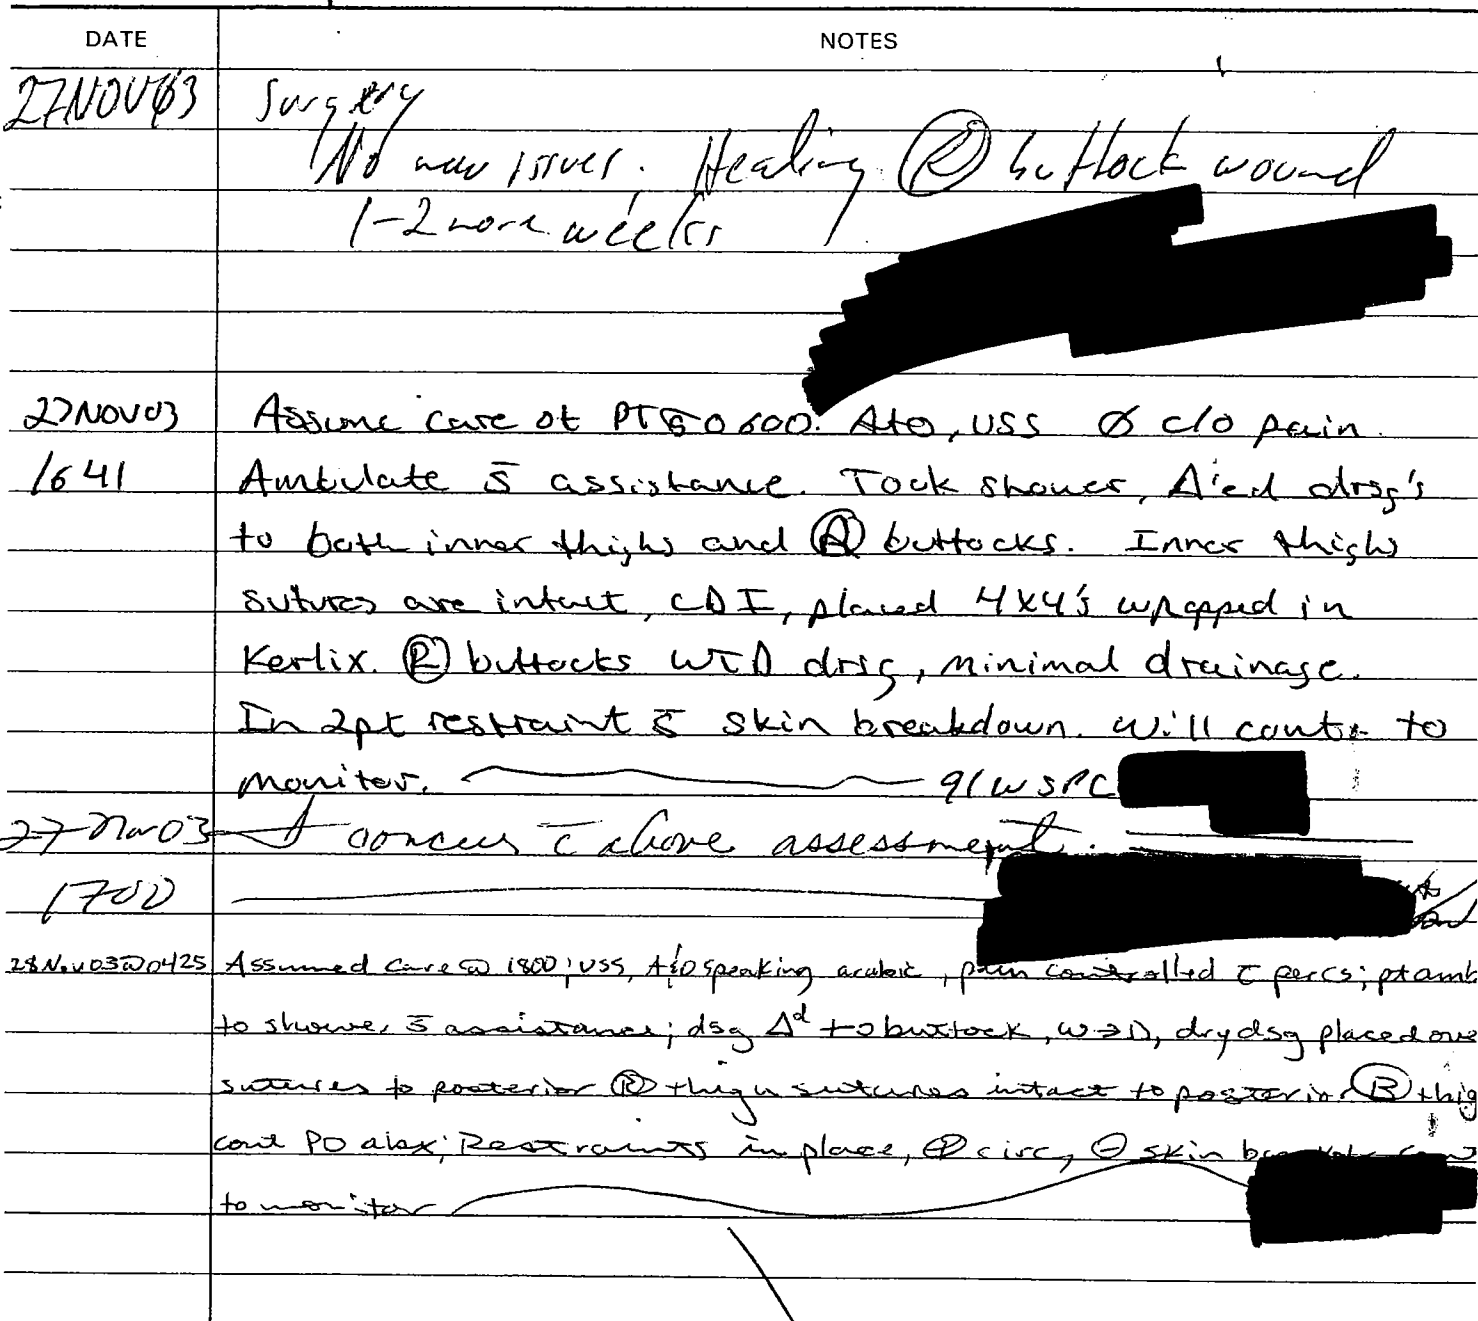 DATE NOTES
27NOV03 Surgery
No new issues. Healing Ⓡ buttock wound
1-2 more weeks
27NOV03 Assume care of PT @ 0600. A+O, VSS Ø c/o pain.
1641 Ambulate s̄ assistance. Took shower, Δ'ed drsg's
to both inner thighs and Ⓡ buttocks. Inner thighs
sutures are intact, CDI, placed 4x4's wrapped in
Kerlix. Ⓡ buttocks WTD drsg, minimal drainage.
In 2pt restraint s̄ skin breakdown. Will cont to
monitor. 91W SPC
27 Nov 03 I concur c̄ above assessment.
1700
28Nov03@0425 Assumed care @ 1800; VSS, A&O speaking arabic, pain controlled c̄ percs; pt amb
to shower s̄ assistance; dsg Δd to buttock, W→D, dry dsg placed over
sutures to posterior Ⓡ thigh sutures intact to posterior Ⓑ thig
cont PO abx; Restraints in place, ⊕ circ, ⊖ skin
to monitor